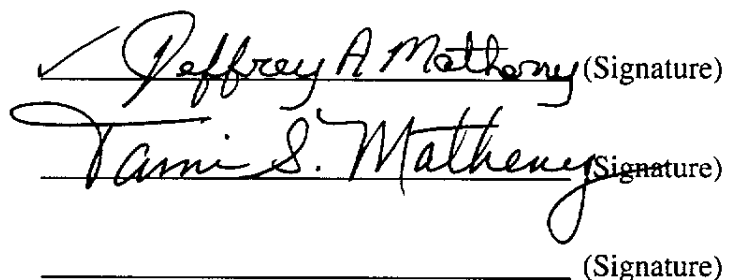 ✓ Jeffrey A Matheny (Signature)
Tami S. Matheny (Signature)
(Signature)